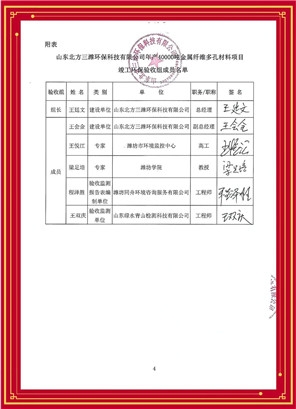 附表
山东北方三潍环保科技有限公司年产10000吨金属纤维多孔材料项目
竣工环保验收组成员名单
验收组 姓名 类别 单位 职务/职称 签名
组长 王廷文 建设单位 山东北方三潍环保科技有限公司 总经理
成员 王会金 建设单位 山东北方三潍环保科技有限公司 副总经理
专家 潍坊市环境监控中心 高工
专家 潍坊学院 教授
验收监测报告表编制单位 潍坊同舟环境咨询服务有限公司 工程师
王双庆 验收监测单位 山东绿水青山检测科技有限公司 工程师
4